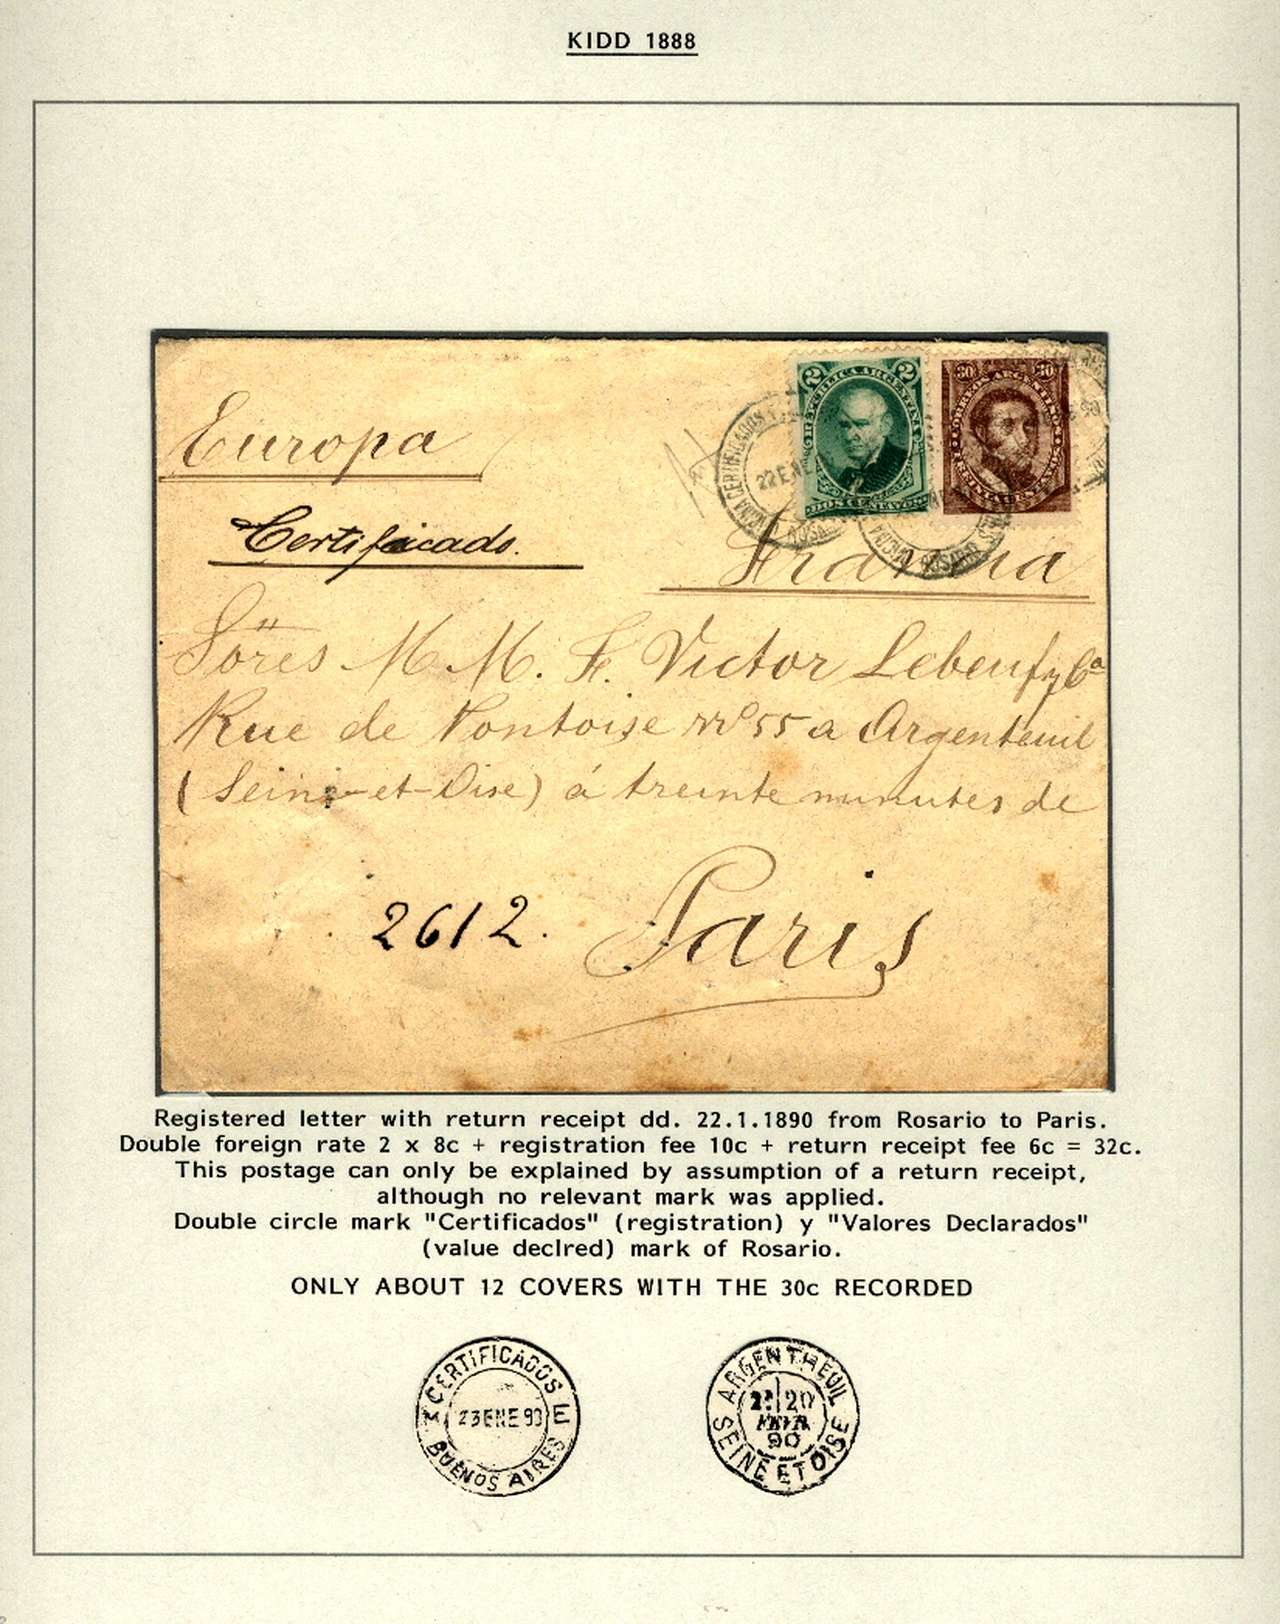 KIDD 1888
2 2
REPUBLICA ARGENTINA
DOS CENTAVOS
30 30
CORREOS ARGENTINOS
TREINTA CENTAVOS
OFICINA CERTIFICADOS
22 ENE
ROSARIO
Europa
Certificado.
Francia
Sōres M. M. F. Victor Lebeuf y Cª
Rue de Pontoise Nº 55 a Argenteuil
(Seine-et-Oise) á treinte minutes de
2612. Paris
Registered letter with return receipt dd. 22.1.1890 from Rosario to Paris.
Double foreign rate 2 x 8c + registration fee 10c + return receipt fee 6c = 32c.
This postage can only be explained by assumption of a return receipt,
although no relevant mark was applied.
Double circle mark "Certificados" (registration) y "Valores Declarados"
(value declred) mark of Rosario.
ONLY ABOUT 12 COVERS WITH THE 30c RECORDED
CERTIFICADOS E
23 ENE 90
BUENOS AIRES
ARGENTHEUIL
20
FEVR
90
SEINE ET OISE